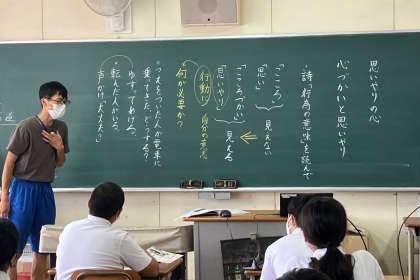 思いやりの心
心づかいと思いやり
・詩「行為の意味」を読んで
「こころ」
「思い」
見えない
「こころづかい」
「思いやり」
見える
行動に
自分の意志
何が必要か?
・つえをついた人が電車に
乗ってきた、どうする?
ゆずってあげる。
・転んだ人がいる。
声かけ「大丈夫?」